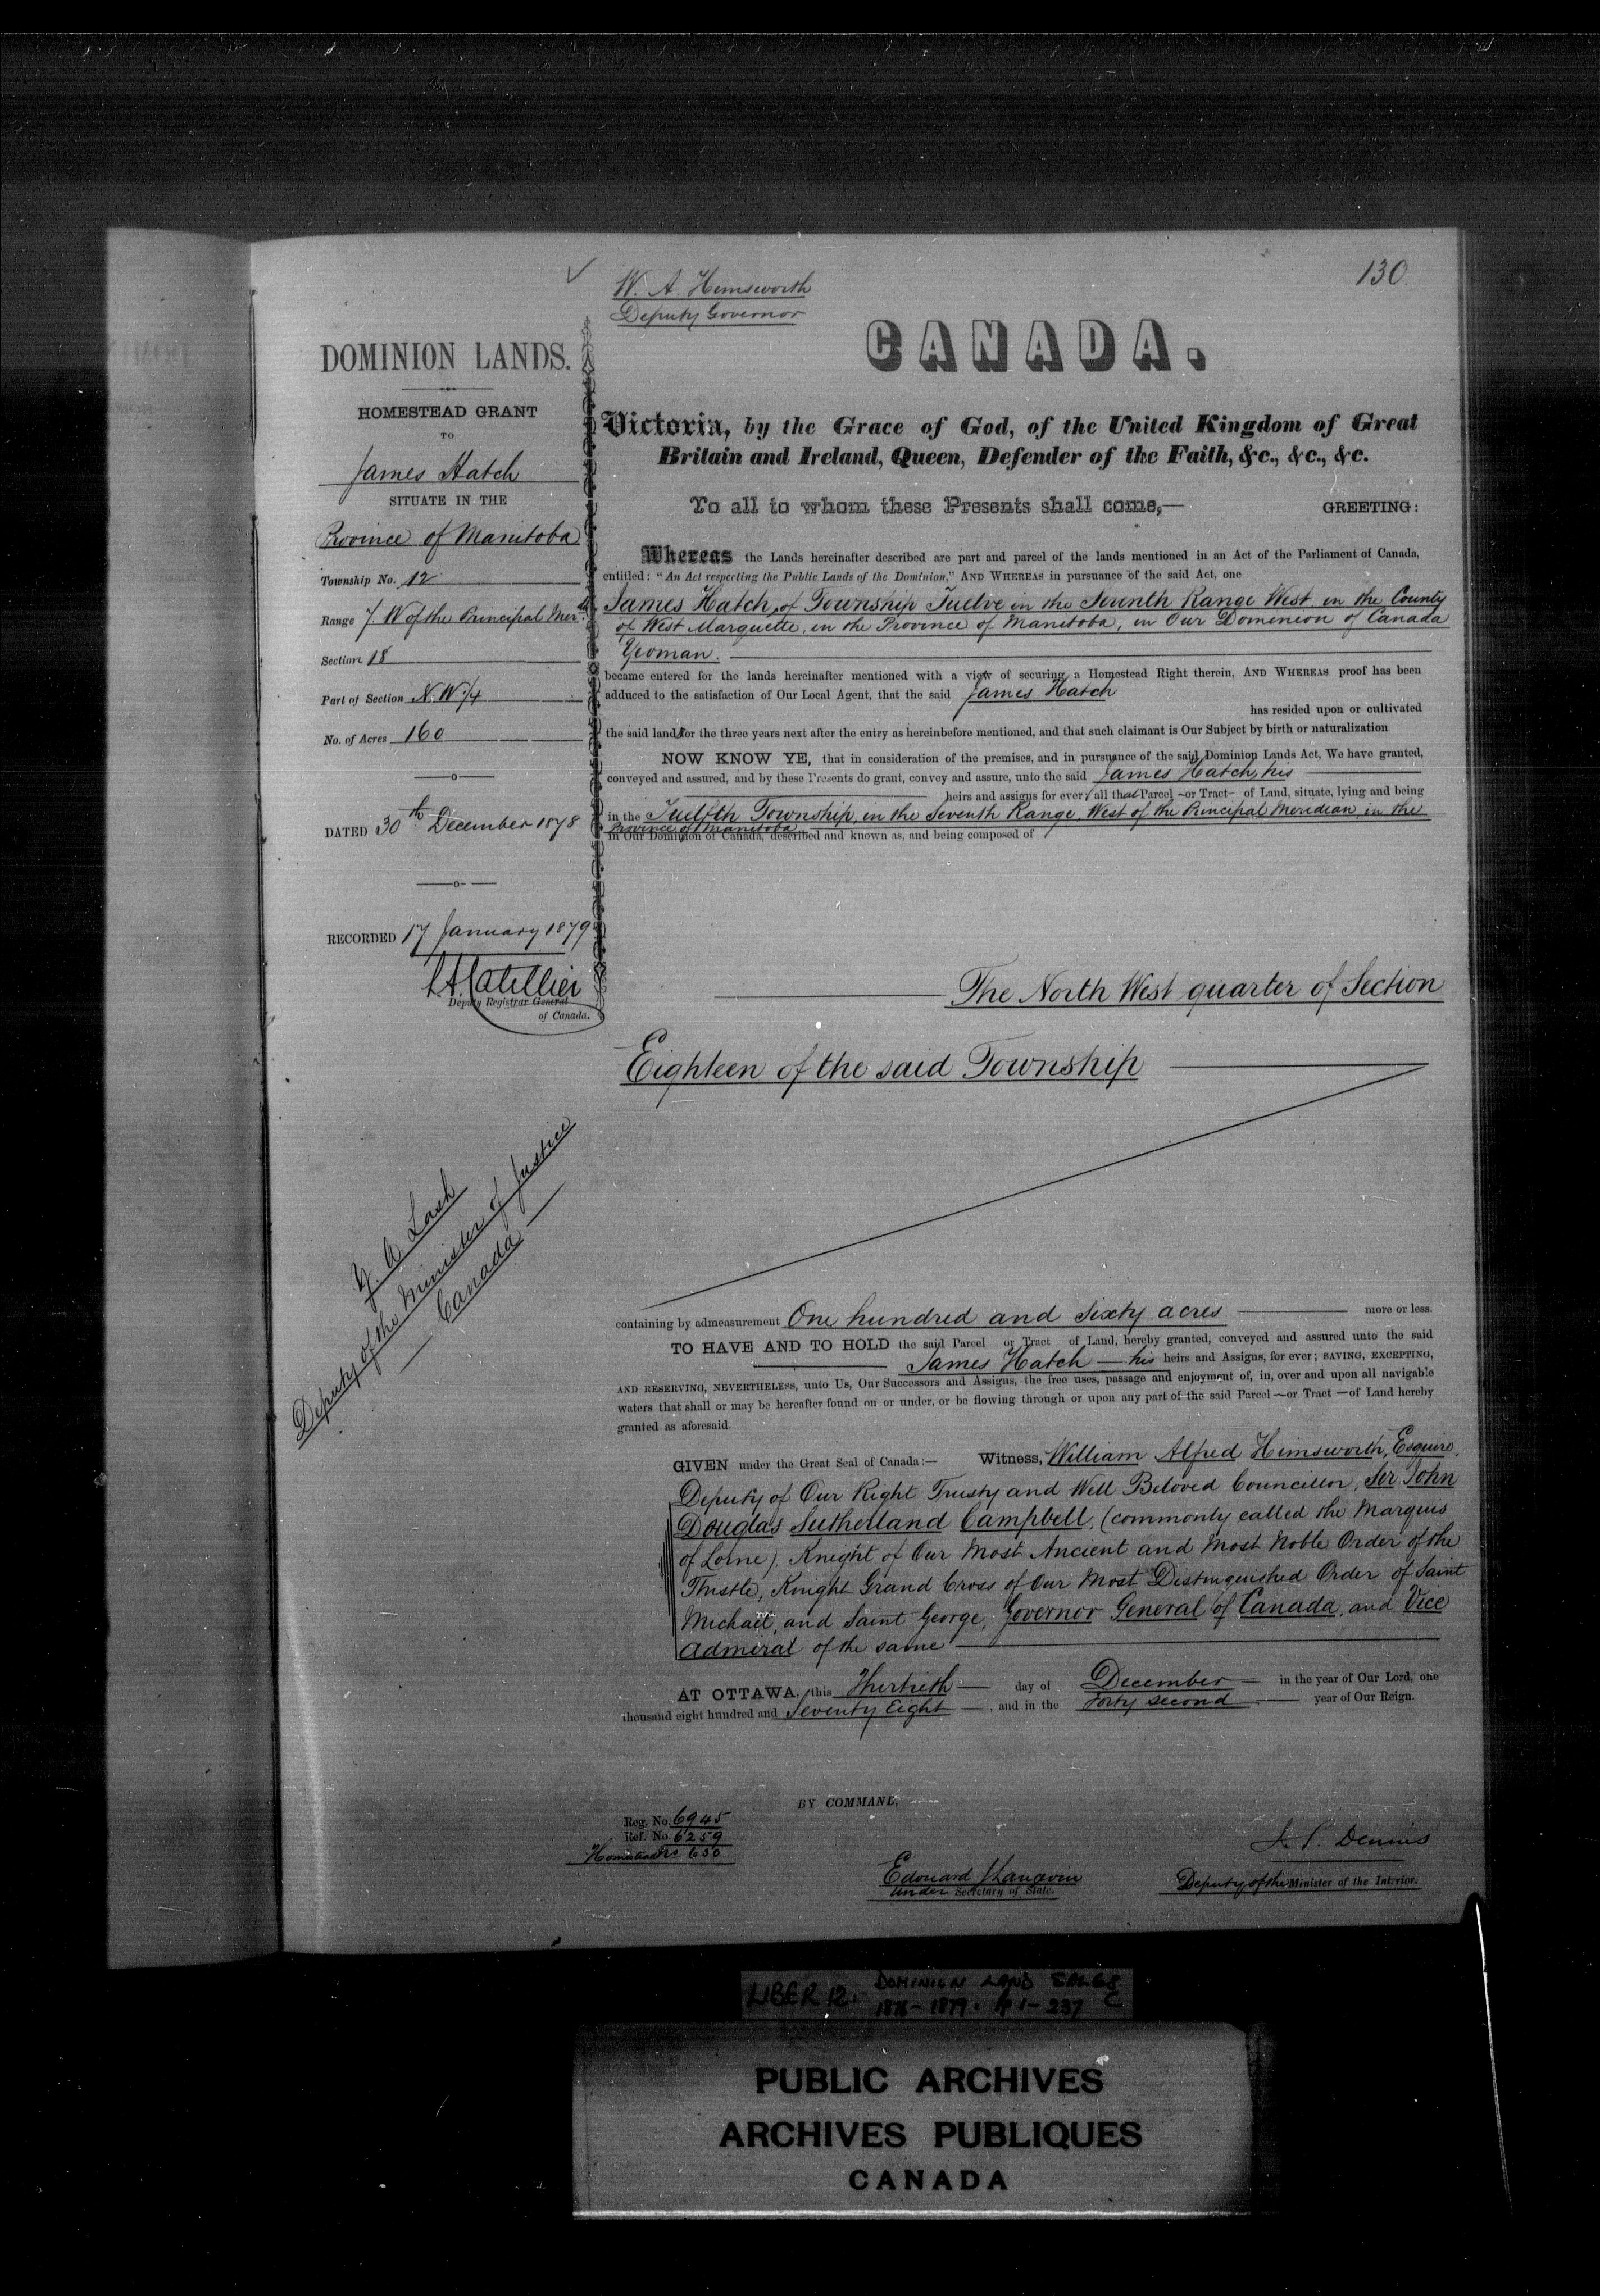 130.
W. A. Himsworth
Deputy Governor
DOMINION LANDS.
HOMESTEAD GRANT
TO
James Hatch
SITUATE IN THE
Province of Manitoba
Township No. 12
Range 7. W of the Principal Merd.
Section 18
Part of Section N. W. 1/4
No. of Acres 160
DATED 30th December 1878
RECORDED 17 January 1879
Deputy Registrar General
of Canada.
Z. A. Lash
Deputy of the Minister of Justice
Canada
CANADA.
Victoria, by the Grace of God, of the United Kingdom of Great
Britain and Ireland, Queen, Defender of the Faith, &c., &c., &c.
To all to whom these Presents shall come,— GREETING:
Whereas the Lands hereinafter described are part and parcel of the lands mentioned in an Act of the Parliament of Canada,
entitled: "An Act respecting the Public Lands of the Dominion," AND WHEREAS in pursuance of the said Act, one
James Hatch, of Township Twelve in the Seventh Range West, in the County
of West Marquette, in the Province of Manitoba, in Our Dominion of Canada
Yeoman.
became entered for the lands hereinafter mentioned with a view of securing a Homestead Right therein, AND WHEREAS proof has been
adduced to the satisfaction of Our Local Agent, that the said James Hatch
has resided upon or cultivated
the said land for the three years next after the entry as hereinbefore mentioned, and that such claimant is Our Subject by birth or naturalization
NOW KNOW YE, that in consideration of the premises, and in pursuance of the said Dominion Lands Act, We have granted,
conveyed and assured, and by these Presents do grant, convey and assure, unto the said James Hatch, his
heirs and assigns for ever; all that Parcel - or Tract - of Land, situate, lying and being
in the Twelfth Township, in the Seventh Range, West of the Principal Meridian in the
Province of Manitoba
in Our Dominion of Canada, described and known as, and being composed of
The North West quarter of Section
Eighteen of the said Township
containing by admeasurement One hundred and sixty acres more or less.
TO HAVE AND TO HOLD the said Parcel or Tract of Land, hereby granted, conveyed and assured unto the said
James Hatch — his heirs and Assigns, for ever; SAVING, EXCEPTING,
AND RESERVING, NEVERTHELESS, unto Us, Our Successors and Assigns, the free uses, passage and enjoyment of, in, over and upon all navigable
waters that shall or may be hereafter found on or under, or be flowing through or upon any part of the said Parcel — or Tract — of Land hereby
granted as aforesaid.
GIVEN under the Great Seal of Canada:— Witness, William Alfred Himsworth, Esquire,
Deputy of Our Right Trusty and Well Beloved Councillor, Sir John
Douglas Sutherland Campbell, (commonly called the Marquis
of Lorne), Knight of Our Most Ancient and Most Noble Order of the
Thistle, Knight Grand Cross of Our Most Distinguished Order of Saint
Michael, and Saint George, Governor General of Canada, and Vice
Admiral of the same
AT OTTAWA, this Thirtieth — day of December — in the year of Our Lord, one
thousand eight hundred and Seventy Eight —, and in the Forty second — year of Our Reign.
BY COMMAND,
Reg. No. 6945
Ref. No. 6259
Homestead No 630
Edouard J Langevin
Under Secretary of State.
J. S. Dennis
Deputy of the Minister of the Interior.
LIBER 12: DOMINION LAND SALES
1878-1879. pp 1-237 C
PUBLIC ARCHIVES
ARCHIVES PUBLIQUES
CANADA